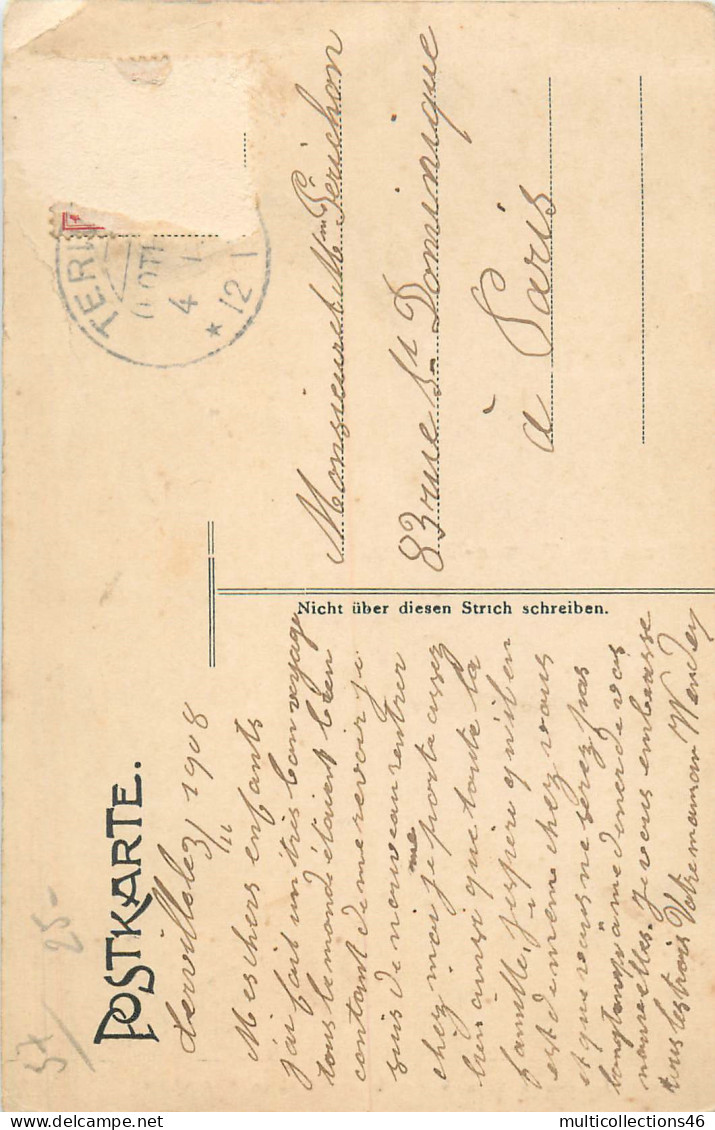 POSTKARTE.
TERV
(LOTH
4 1
* 12 1
57/ 25-
Terville le 3/11 1908
Mes chers enfants
j'ai fait un très bon voyage
tous le monde étaient bien
contant de me revoir je
suis de nouveau rentrer
chez moi je me porte assez
bien ainsi que toute la
famille, j'espère qu'il en
est de meme chez vous
et que vous ne serez pas
longtemps à me donner de vos
nouvelles. Je vous embrasse
tous les trois Votre maman
Nicht über diesen Strich schreiben.
Monsieur et Mme Périchon
83 rue St Dominique
à Paris
multicollections46